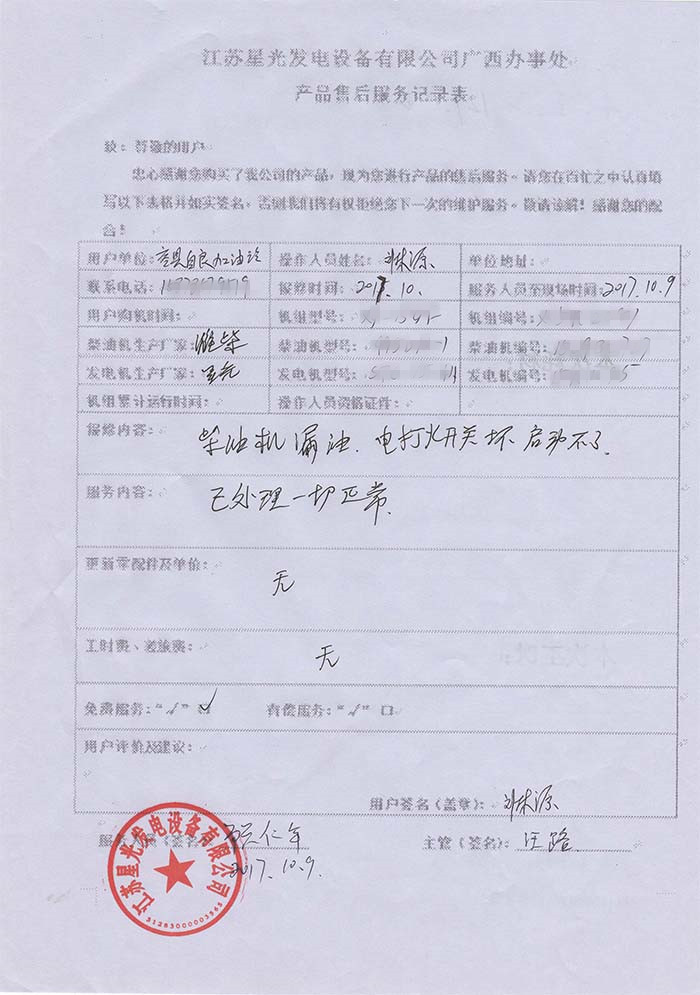 江苏星光发电设备有限公司广西办事处
产品售后服务记录表
致：尊敬的用户
忠心感谢您购买了我公司的产品，现为您进行产品的售后服务。请您在百忙之中认真填
写以下表格并如实签名，否则我们将有权拒绝您下一次的维护服务。敬请谅解！感谢您的配
合！
用户单位： 自良加油站 操作人员姓名： 林源 单位地址：
联系电话： 报修时间：2017.10. 服务人员至现场时间：2017.10.9
用户购机时间： 机组型号： 机组编号：
柴油机生产厂家：潍柴 柴油机型号： 柴油机编号：
发电机生产厂家：星光 发电机型号： 发电机编号：
机组累计运行时间： 操作人员资格证件：
报修内容： 柴油机漏油、电打火开关坏 启动不了
服务内容： 已处理一切正常
更新零配件及单价： 无
工时费、差旅费： 无
免费服务：“√”口 √ 有偿服务：“√”口
用户评价及建议：
用户签名（盖章）： 林源
服务 （签名） 仁年 主管（签名）： 汪路
2017.10.9.
江苏星光发电设备有限公司